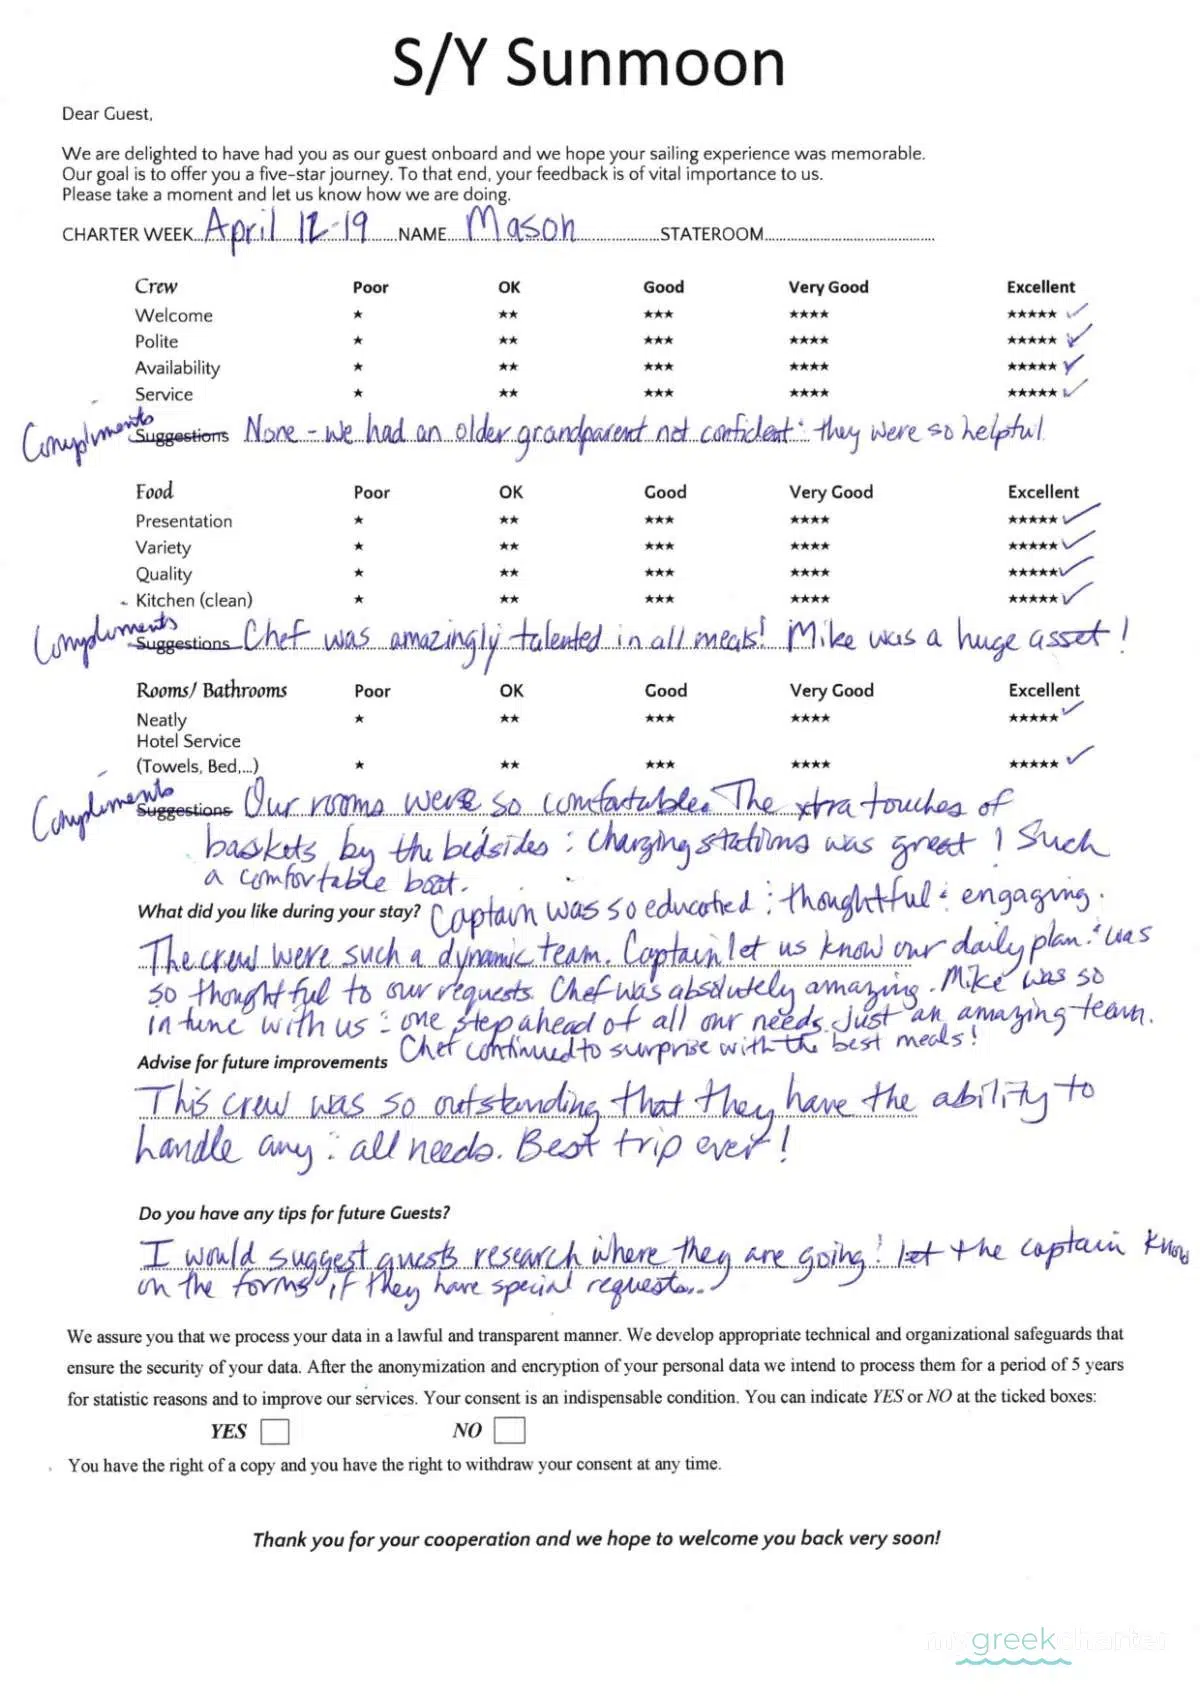 S/Y Sunmoon
Dear Guest,
We are delighted to have had you as our guest onboard and we hope your sailing experience was memorable.
Our goal is to offer you a five-star journey. To that end, your feedback is of vital importance to us.
Please take a moment and let us know how we are doing.
CHARTER WEEK April 12-19 NAME Mason STATEROOM
Crew Poor OK Good Very Good Excellent
Welcome ★ ★★ ★★★ ★★★★ ★★★★★ ✓
Polite ★ ★★ ★★★ ★★★★ ★★★★★ ✓
Availability ★ ★★ ★★★ ★★★★ ★★★★★ ✓
Service ★ ★★ ★★★ ★★★★ ★★★★★ ✓
Compliments Suggestions None - we had an older grandparent not confident : they were so helpful
Food Poor OK Good Very Good Excellent
Presentation ★ ★★ ★★★ ★★★★ ★★★★★ ✓
Variety ★ ★★ ★★★ ★★★★ ★★★★★ ✓
Quality ★ ★★ ★★★ ★★★★ ★★★★★ ✓
Kitchen (clean) ★ ★★ ★★★ ★★★★ ★★★★★ ✓
Compliments Suggestions Chef was amazingly talented in all meals! Mike was a huge asset!
Rooms/ Bathrooms Poor OK Good Very Good Excellent
Neatly ★ ★★ ★★★ ★★★★ ★★★★★ ✓
Hotel Service
(Towels, Bed,...) ★ ★★ ★★★ ★★★★ ★★★★★ ✓
Compliments Suggestions Our rooms were so comfortable. The xtra touches of
baskets by the bedsides : charging stations was great! Such
a comfortable boat.
What did you like during your stay? Captain was so educated : thoughtful : engaging.
The crew were such a dynamic team. Captain let us know our daily plan : was
so thoughtful to our requests. Chef was absolutely amazing. Mike was so
in tune with us : one step ahead of all our needs. Just an amazing team.
Chef continued to surprise with the best meals!
Advise for future improvements
This crew was so outstanding that they have the ability to
handle any : all needs. Best trip ever!
Do you have any tips for future Guests?
I would suggest guests research where they are going : let the captain know
on the forms if they have special requests...
We assure you that we process your data in a lawful and transparent manner. We develop appropriate technical and organizational safeguards that
ensure the security of your data. After the anonymization and encryption of your personal data we intend to process them for a period of 5 years
for statistic reasons and to improve our services. Your consent is an indispensable condition. You can indicate YES or NO at the ticked boxes:
YES NO
You have the right of a copy and you have the right to withdraw your consent at any time.
Thank you for your cooperation and we hope to welcome you back very soon!
mygreekcharter